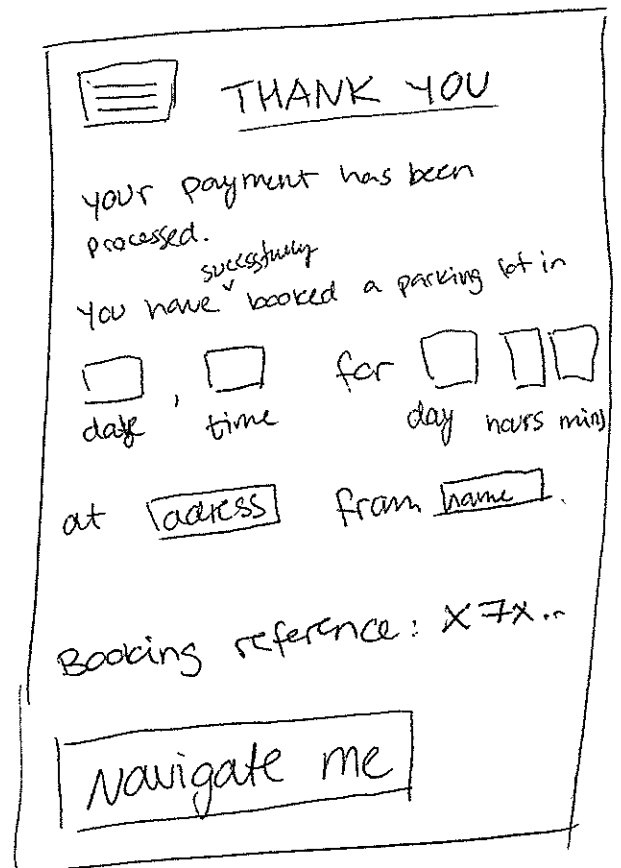 THANK YOU
your payment has been
processed.
sucessfully
You have booked a parking lot in
, for
date time day hours mins
at adress from name.
Booking reference: X7X..
Navigate me